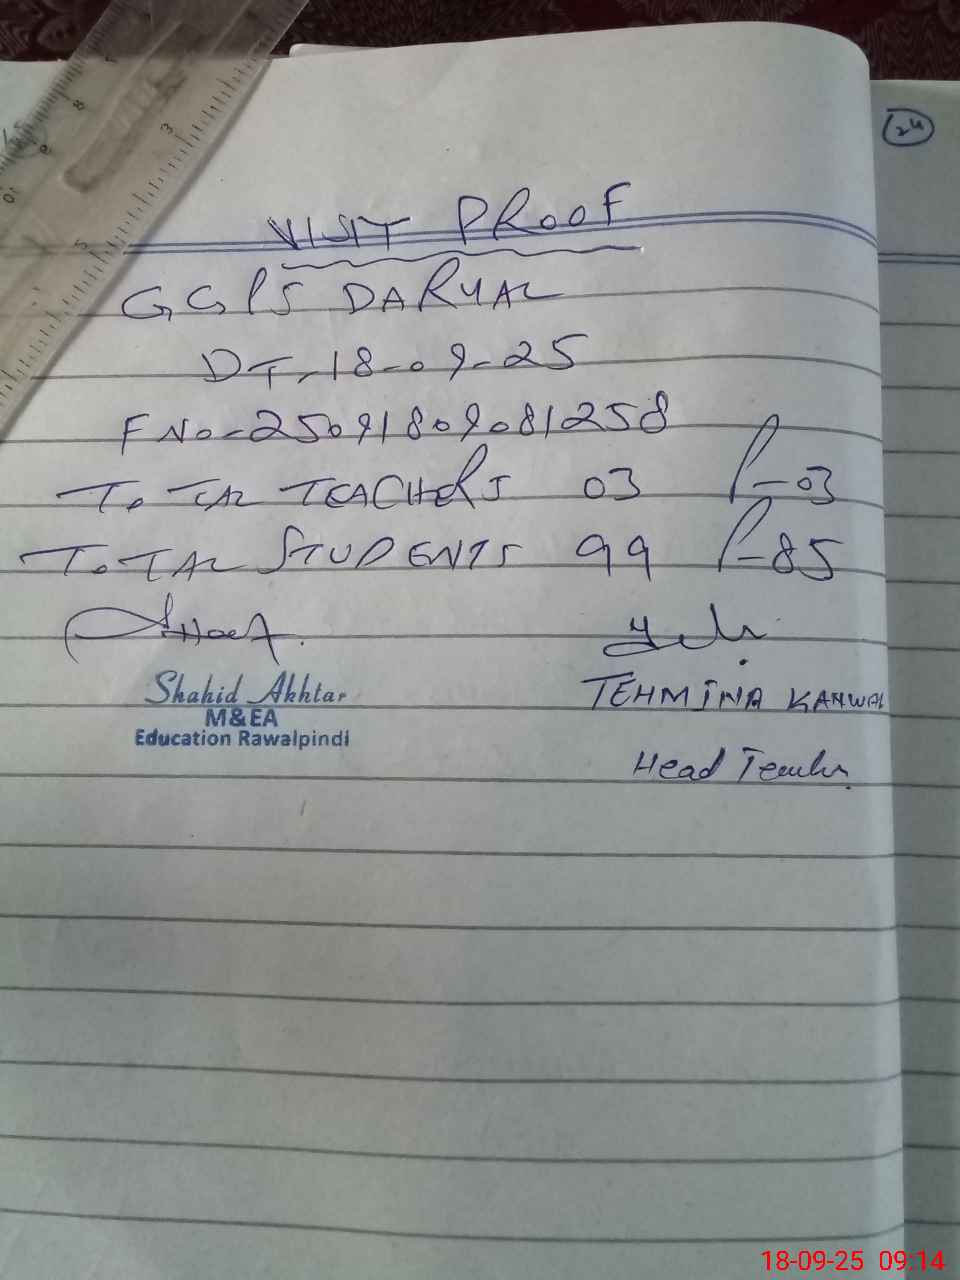 24
VISIT PROOF
GGPS DARYAL
DT-18-09-25
F No-25091809081258
TOTAL TEACHERS 03 P-03
TOTAL STUDENTS 99 P-85
Shahid Akhtar
M&EA
Education Rawalpindi
TEHMINA KANWAL
Head Teacher
18-09-25 09:14